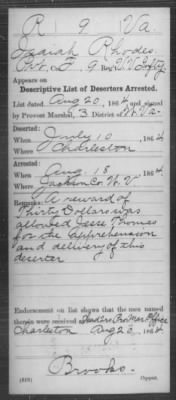 R 9 Va.
Isaiah Rhodes
Pvt. F. 9 Reg't
Appears on
Descriptive List of Deserters Arrested.
List dated Aug 20, 1864, and signed
by Provost Marshal, 3 District of W. Va.
Deserted:
When July 10, 1864
Where Charleston
Arrested:
When Aug. 18, 1864
Where Jackson Co. W. V.
Remarks: A reward of
Thirty Dollars was
allowed Jesse Thomas
for the apprehension
and delivery of this
deserter
Endorsement on list shows that the men named
therein were received at
Charleston Aug 20, 1864
Brooks.
Copyist.